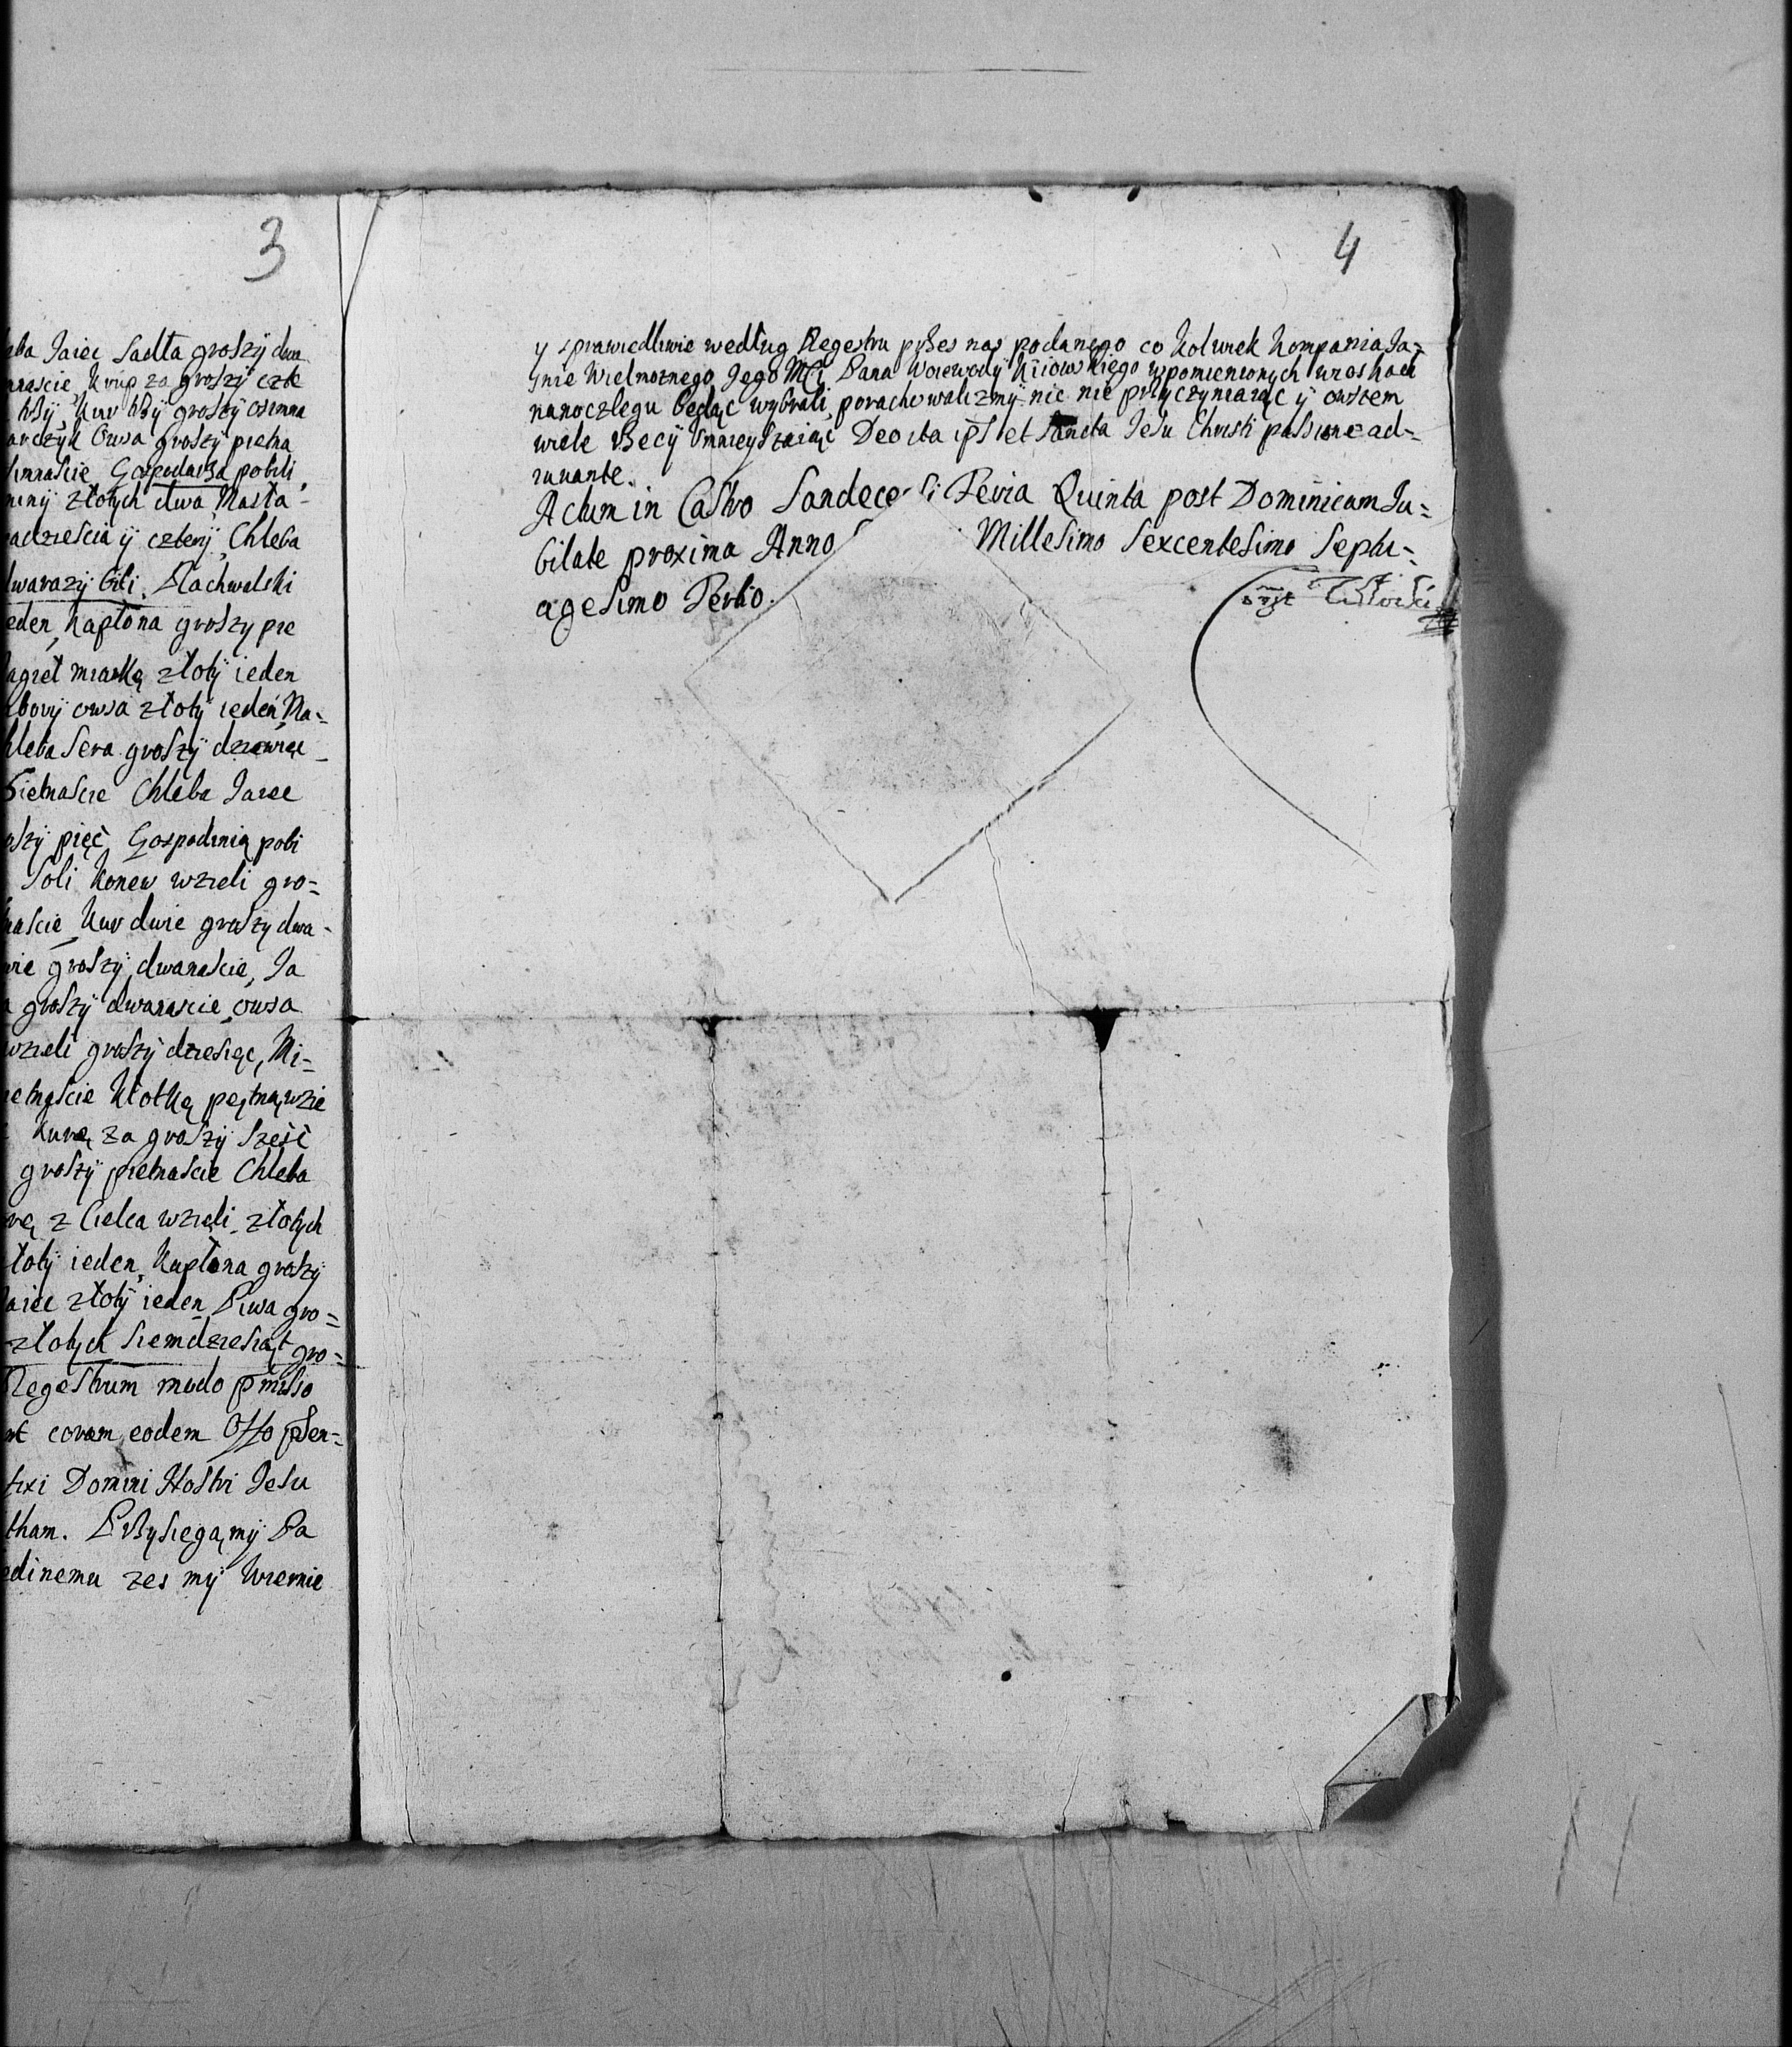 3
Jaiec Sadła groszy dwa
naście, Krup za groszy czte
trzy, Kur trzy groszy osmna
Owsa groszy piętna
Gospodarza pobili,
złotych dwa, Masła
adzieścia y cztery, Chleba
dwarazy bili. Stachwalski
ieden, Kapłona groszy pie
miarką złoty ieden
owsa złoty ieden, Ma=
Chleba Sera groszy dziewięc
Pietnaście Chleba Jaiec
pięć Gospodinią pobi
Soli Konew wzieli gro=
naście, Kur dwie groszy dwa-
groszy dwanaście, Ja
groszy dwanaście, owsa
wzieli groszy dziesięc, Mi=
Kłotką pętną wzie
Kurę za groszy sześć
groszy pietnaście Chleba
z Cielca wzięli złotych
złoty ieden, Kapłona groszy
Jaiec złoty ieden Piwa gro=
złotych siemdziesiąt gro=
Regestrum modo pmisso
coram eodem Offo psen=
fixi Domini Nostri Jesu
Przysięgamy Pa
edinemu zes my Wiernie
4
y sprawiedliwie według Regestru przes nas podanego co kolwiek Kompania Ja=
snie Wielmoznego Jego Mci Pana Woiewody Kiiowskiego wpomienionych wioskach
nanoczlegu będąc wybrali, porachowalizmy nic nie przyczyniaiąc y owszem
wiele rzecy Vmnieyszaiąc Deo ita ipsi et Sancta Jesu Christi passione ad=
iuvante.
Actum in Castro Sandecensi Feria Quinta post Dominicam Ju=
bilate proxima Anno Millesimo Sexcentesimo Septu=
agesimo Tertio.